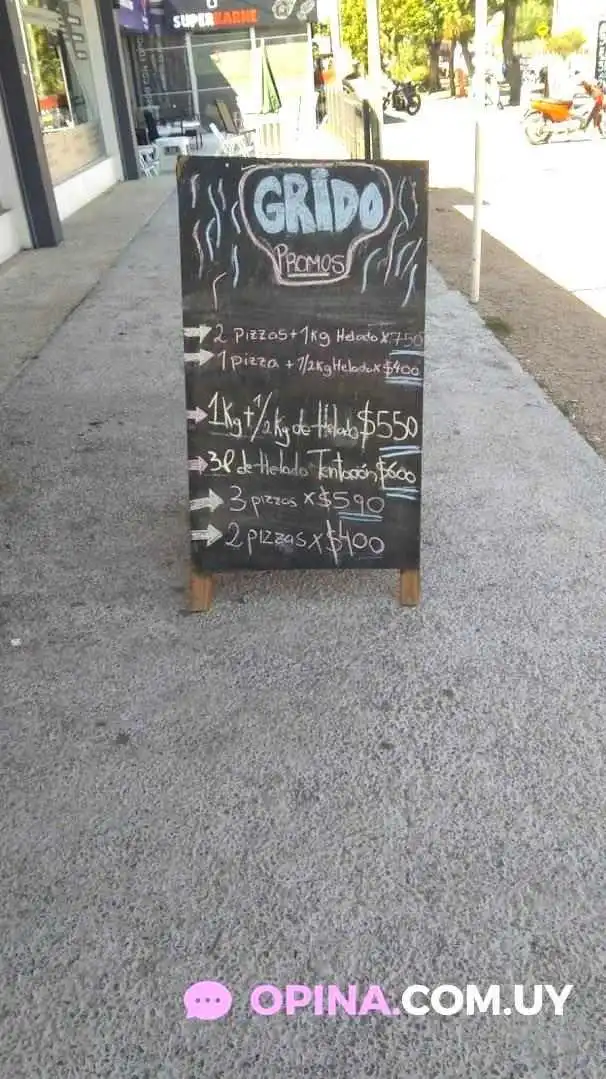 SUPERKARNE
GRIDO
PROMOS
2 Pizzas + 1Kg Helado x 750
1 pizza + 1/2Kg Helado x $400
1Kg + 1/2 Kg de Helado $550
3l de Helado Tentación $600
3 pizzas x $590
2 pizzas x $400
OPINA.COM.UY